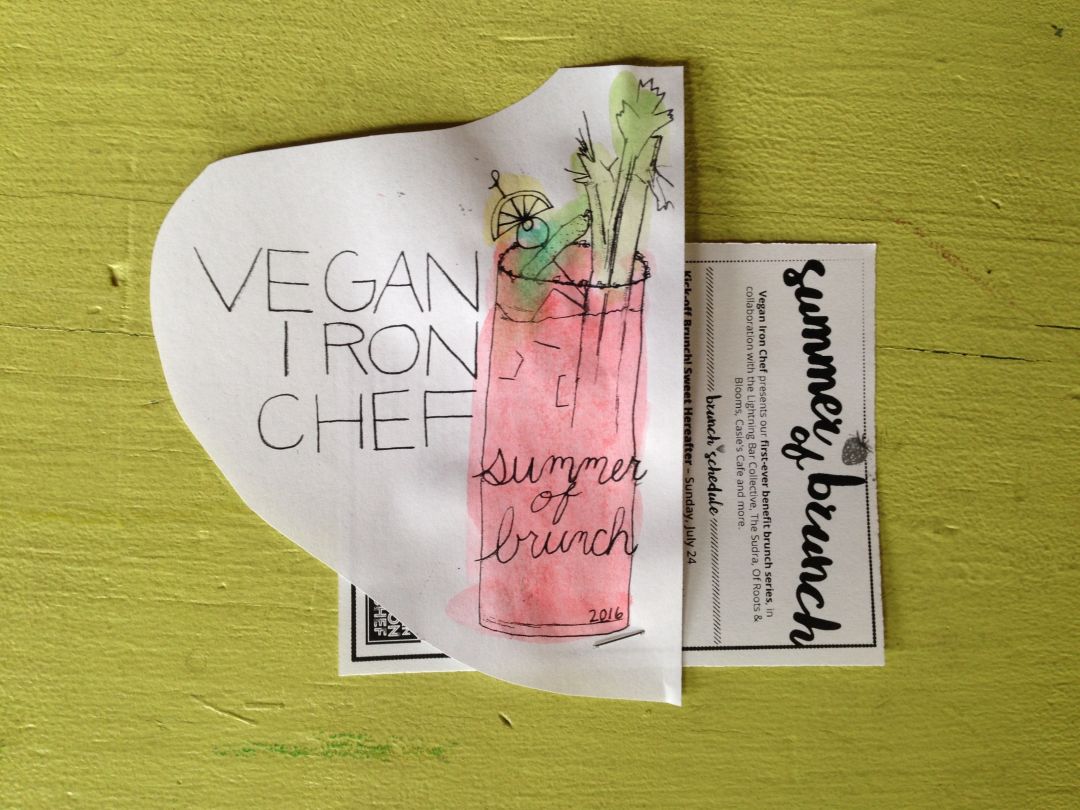 VEGAN
IRON
CHEF
summer
of
brunch
2016
summer of brunch
Vegan Iron Chef presents our first-ever benefit brunch series, in
collaboration with the Lightning Bar Collective, The Sudra, Of Roots &
Blooms, Casie's Cafe and more.
brunch schedule
Kick-off Brunch! Sweet Hereafter – Sunday, July 24
IRON
CHEF